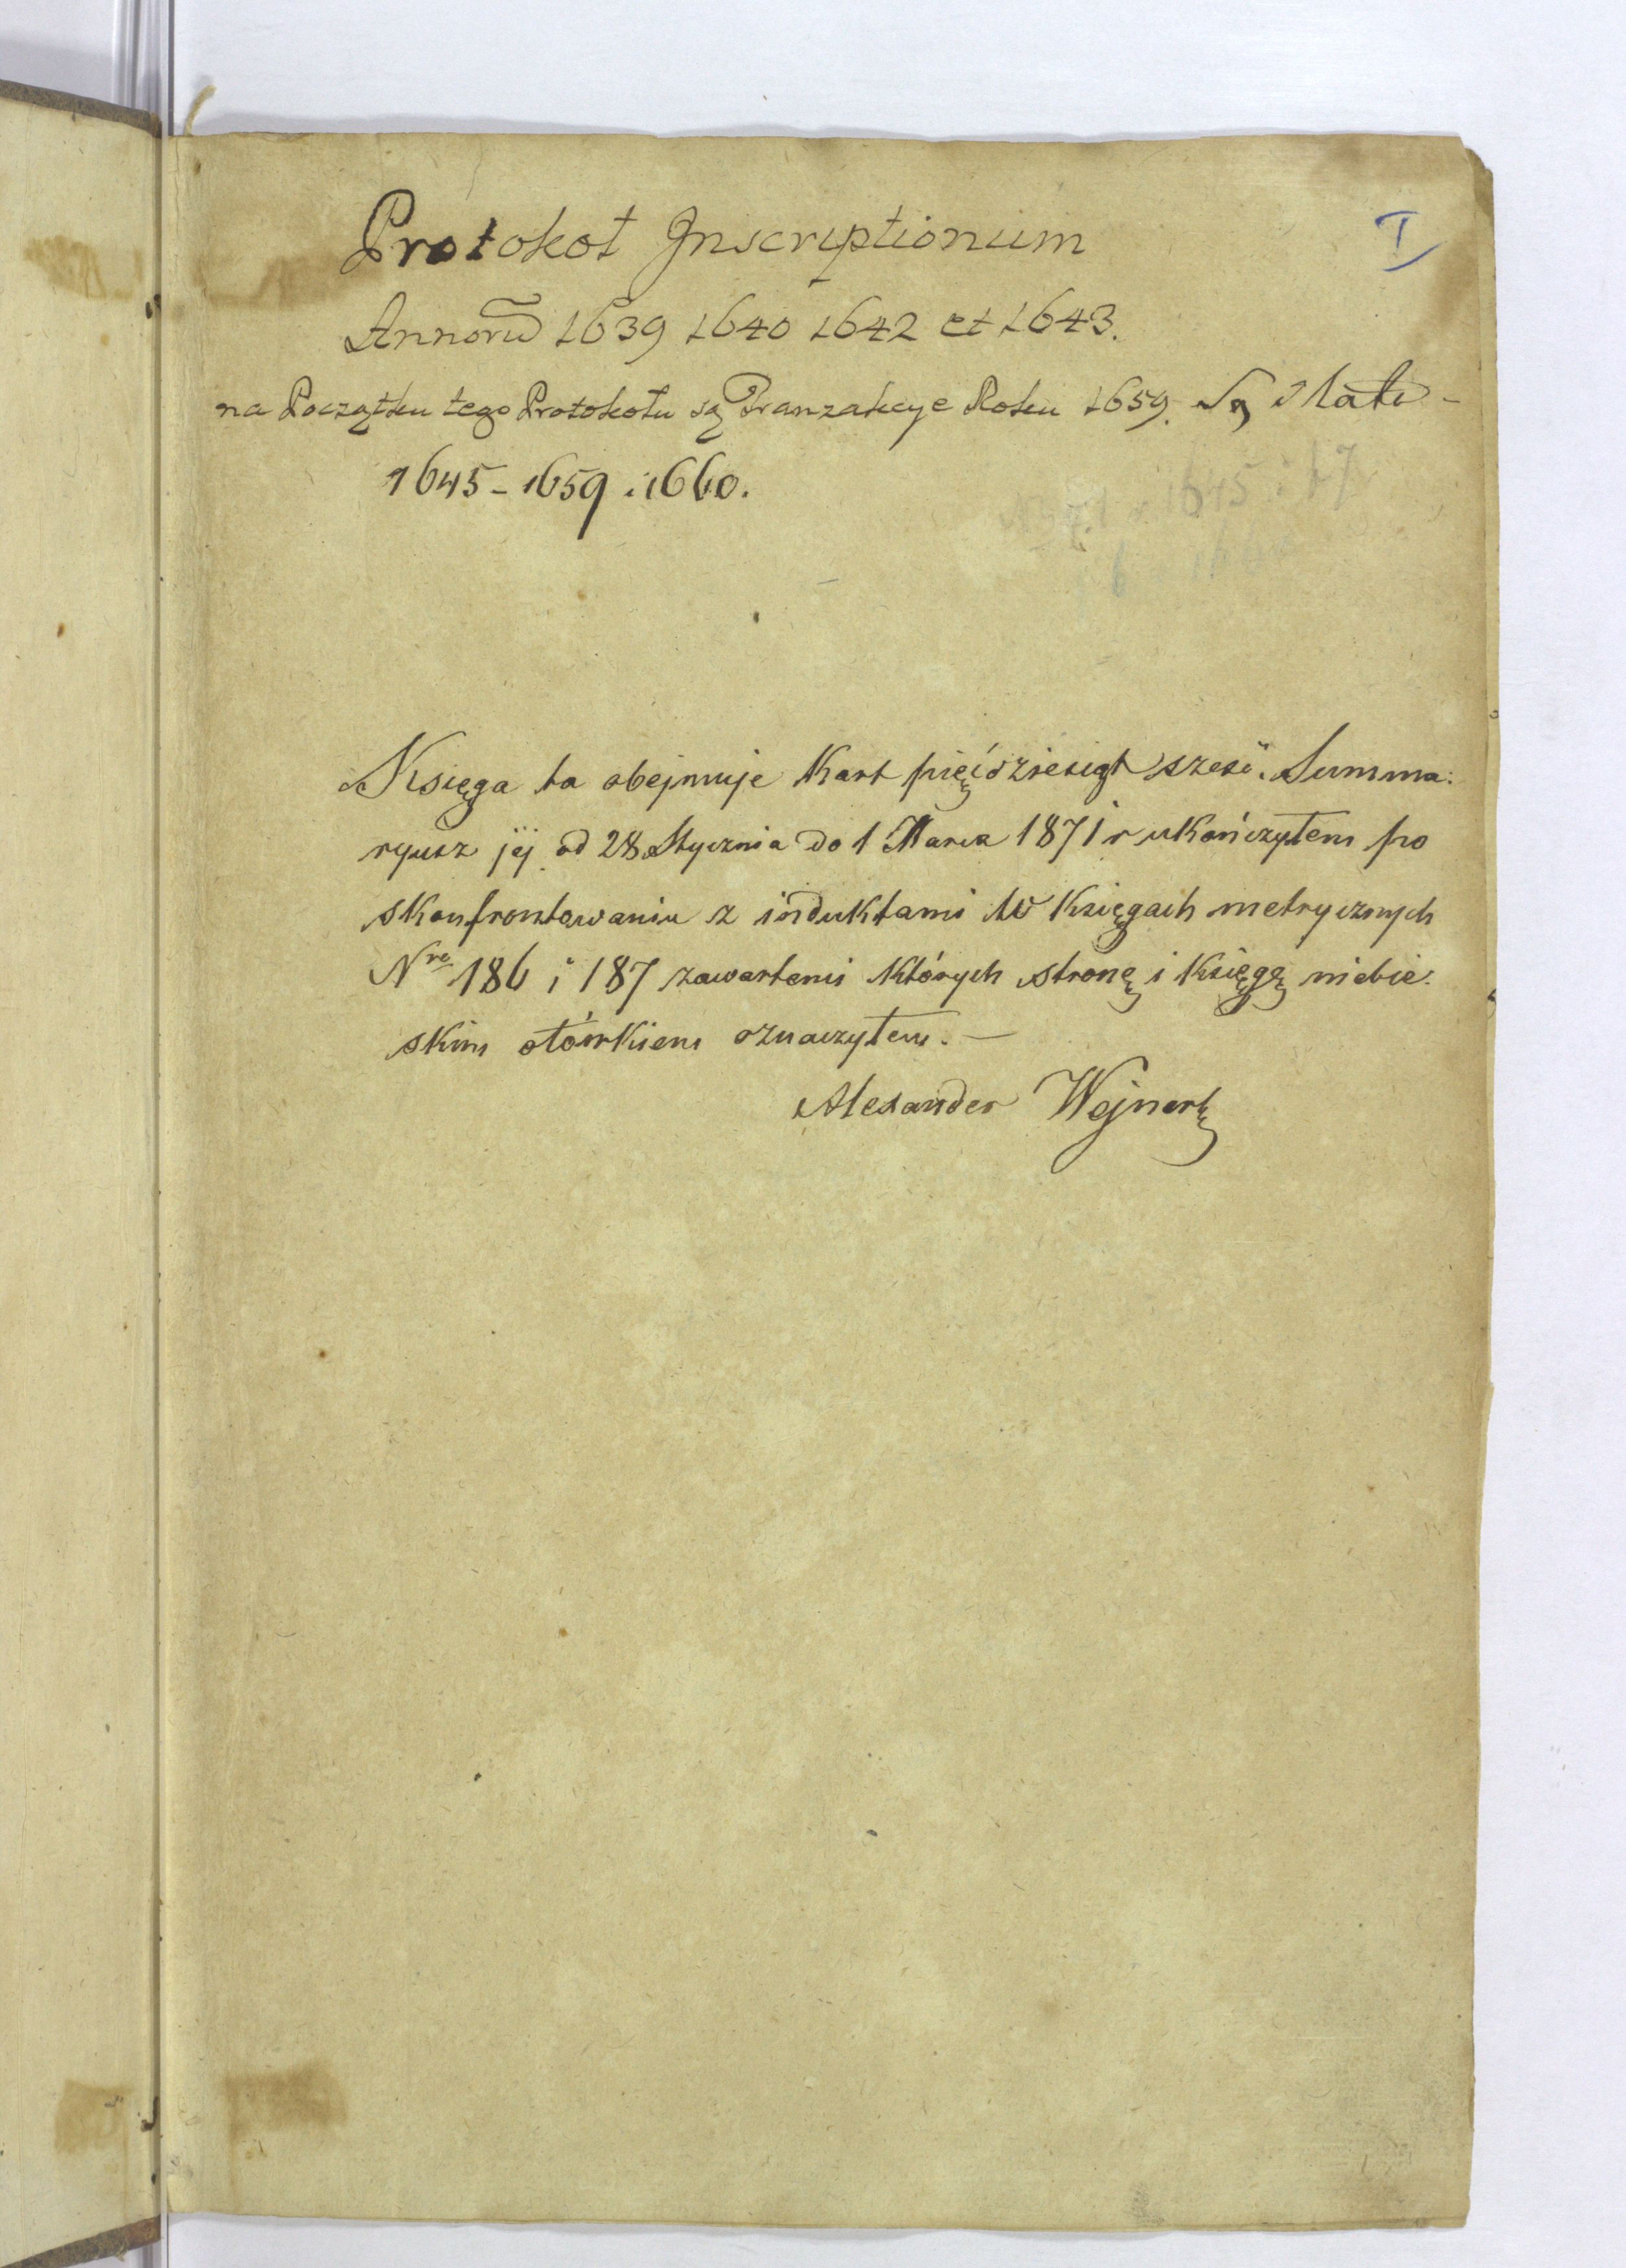 I
Protokoł Inscriptionum
Annorũ 1639 1640 1642 et 1643.
na Początku tego Protokołu są Tranzakcye Roku 1659. Są
1645 - 1659 i 1660.
Księga ta obejmuje Kart pięćdziesiąt sześć. Summa:
ryusz jej od 28 Stycznia do 1 Marca 1871 r ukończyłem po
skonfrontowaniu z induktami w Księgach metrycznych
Nro 186 i 187 zawartemi których stronę i Księgę niebie:
skim ołówkiem oznaczyłem. —
Alexander Wejnert